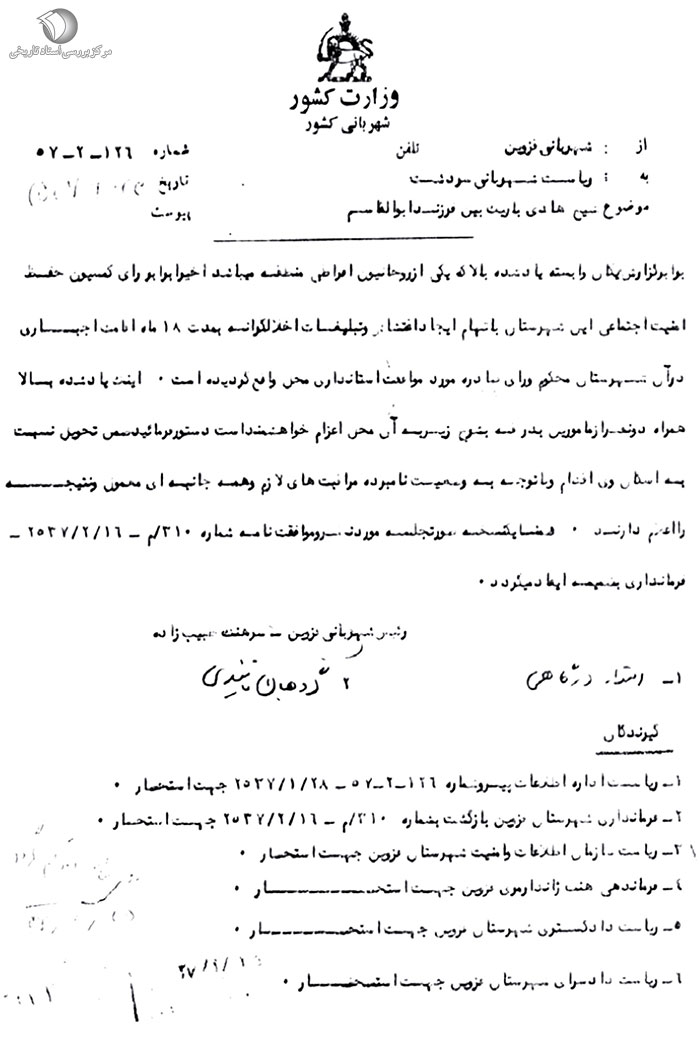 مرکز بررسی اسناد تاریخی
وزارت کشور
شهربانی کشور
از : شهربانی قزوین تلفن شماره ۱۲۶-۲-۵۷
به : ریاست شهربانی سردشت تاریخ
موضوع شیخ هادی باریک بین فرزند ابوالقاسم پیوست
برابر گزارش یگان وابسته یاد شده بالا که یکی از روحانیون افراطی منطقه میباشد اخیرا برابر رای کمسیون حفظ
امنیت اجتماعی این شهرستان باتهام ایجاد اغتشاش وتبلیغات اخلالگرانه بمدت ۱۸ ماه اقامت اجبـــاری
در آن شهرستان محکوم ورای صادره مورد موافقت استانداری محل واقع گردیده است ۰ اینک یاد شده بالا
همراه دونفر از مامورین بدرقه بشرح زیر به آن محل اعزام خواهشمند است دستور فرمائید ضمن تحویل نسبت
به اسکان وی اقدام وباتوجه به وضعیت نامبرده مراقبت های لازم وهمه جانبه ای معمول ونتیجـــه
را اعلام دارند ۰ ضمنا یکنسخه صورتجلسه مورد نظر وموافقت نامه شماره ۳۱۰/م - ۲۵۳۷/۲/۱۶ -
فرمانداری بضمیمه ایفاد میگردد ۰
رئیس شهربانی قزوین - سرهنگ حبیب زاده
۱-
۲
گیرندگان
۱- ریاست اداره اطلاعات پیرو شماره ۱۲۶-۲-۵۷ - ۲۵۳۷/۱/۲۸ جهت استحضار ۰
۲- فرمانداری شهرستان قزوین بازگشت بشماره ۳۱۰/م - ۲۵۳۷/۲/۱۶ جهت استحضار ۰
۳- ریاست سازمان اطلاعات وامنیت شهرستان قزوین جهت استحضار ۰
۴- فرماندهی هنگ ژاندارمری قزوین جهت استحضـــار ۰
۵- ریاست دادگستری شهرستان قزوین جهت استحضـــار ۰
۶- ریاست دادسرای شهرستان قزوین جهت استحضـــار ۰